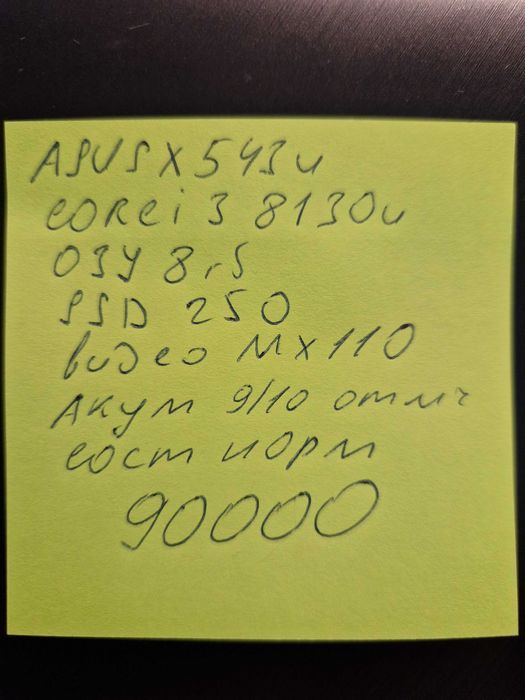 ASUS X543u
corei3 8130u
ОЗУ 8гб
SSD 250
видео MX110
Акум 9/10 отлич
сост норм
90000